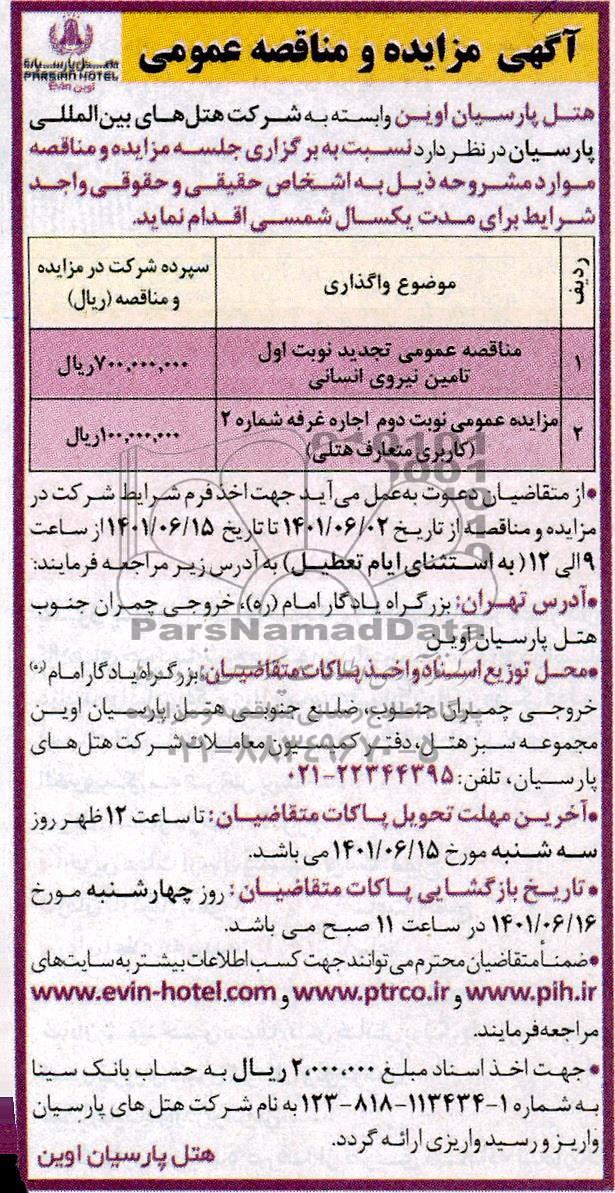 آگهی مزایده و مناقصه عمومی
هتـل پارسیان
PARSIAN HOTEL
Evin اوین
هتـل پارسـیان اوین وابسته به شـرکت هتل‌های بین‌المللی
پارسیان در نظر دارد نسبت به برگزاری جلسه مزایده و مناقصه
موارد مشروحه ذیل به اشخاص حقیقی و حقوقی واجد
شرایط برای مدت یکسال شمسی اقدام نماید.
ردیف
موضوع واگذاری
سپرده شرکت در مزایده
و مناقصه (ریال)
۱
مناقصه عمومی تجدید نوبت اول
تامین نیروی انسانی
۷۰۰,۰۰۰,۰۰۰ریال
۲
مزایده عمومی نوبت دوم اجاره غرفه شماره ۲
(کاربری متعارف هتلی)
۱۰۰,۰۰۰,۰۰۰ریال
•از متقاضیان دعوت به‌عمل می‌آید جهت اخذ فرم شرایط شرکت در
مزایده و مناقصه از تاریخ ۱۴۰۱/۰۶/۰۲ تا تاریخ ۱۴۰۱/۰۶/۱۵ از ساعت
۹ الی ۱۲ (به استثنای ایام تعطیل) به آدرس زیر مراجعه فرمایند:
•آدرس تهران: بزرگراه یادگار امام (ره)، خروجی چمران جنوب
هتل پارسیان اوین
•محل توزیع اسناد و اخذ پاکات متقاضیان: بزرگراه یادگار امام (ره)
خروجی چمران جنوب، ضلع جنوبی هتل پارسیان اوین
مجموعه سبز هتل، دفتر کمیسیون معاملات شرکت هتل‌های
پارسیان، تلفن: ۲۲۳۴۴۳۹۵-۰۲۱
•آخرین مهلت تحویل پاکات متقاضیان: تا ساعت ۱۲ ظهر روز
سه شنبه مورخ ۱۴۰۱/۰۶/۱۵ می باشد.
•تاریخ بازگشایی پاکات متقاضیان: روز چهارشنبه مورخ
۱۴۰۱/۰۶/۱۶ در ساعت ۱۱ صبح می باشد.
•ضمناً متقاضیان محترم می‌توانند جهت کسب اطلاعات بیشتر به سایت‌های
www.pih.ir و www.ptrco.ir و www.evin-hotel.com
مراجعه فرمایند.
•جهت اخذ اسناد مبلغ ۲,۰۰۰,۰۰۰ ریال به حساب بانک سینا
به شماره ۱-۱۱۳۴۳۴-۸۱۸-۱۲۳ به نام شرکت هتل های پارسیان
واریز و رسید واریزی ارائه گردد.
هتل پارسیان اوین
ParsNamadData
پایگاه اطلاع رسانی مناقصه و مزایده
۰۲۱-۸۸۳۴۹۶۷۰-۵